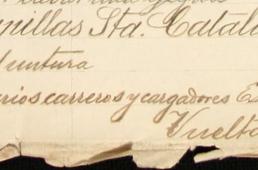 millas Sta. Catal
Juntura
rios carreros y cargadores E
Vuelta